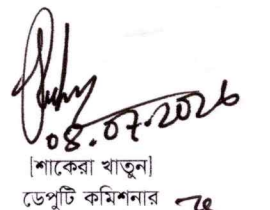 08.07.2026
[শাকেরা খাতুন]
ডেপুটি কমিশনার